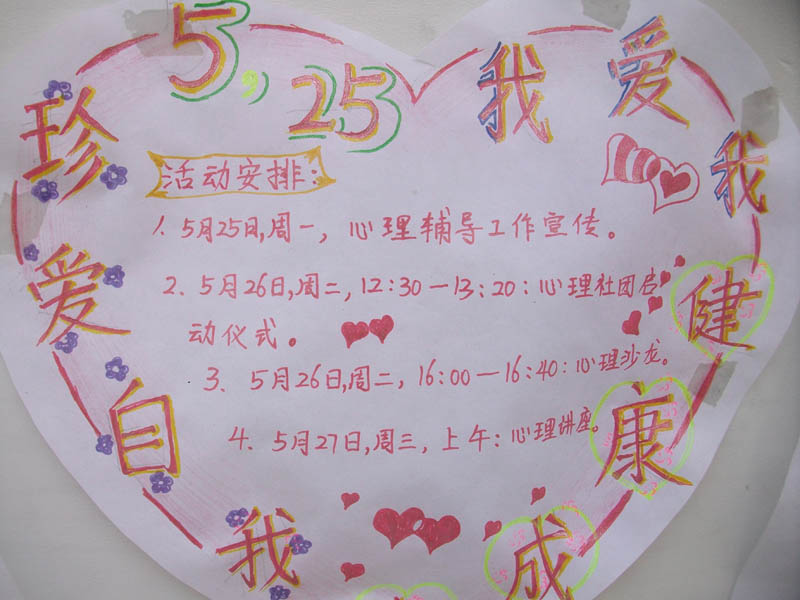 5,25
我爱我
健康成
珍爱自我
活动安排:
1、5月25日,周一,心理辅导工作宣传。
2、5月26日,周二,12:30—13:20:心理社团启
动仪式。
3、5月26日,周二,16:00—16:40:心理沙龙。
4、5月27日,周三,上午:心理讲座。